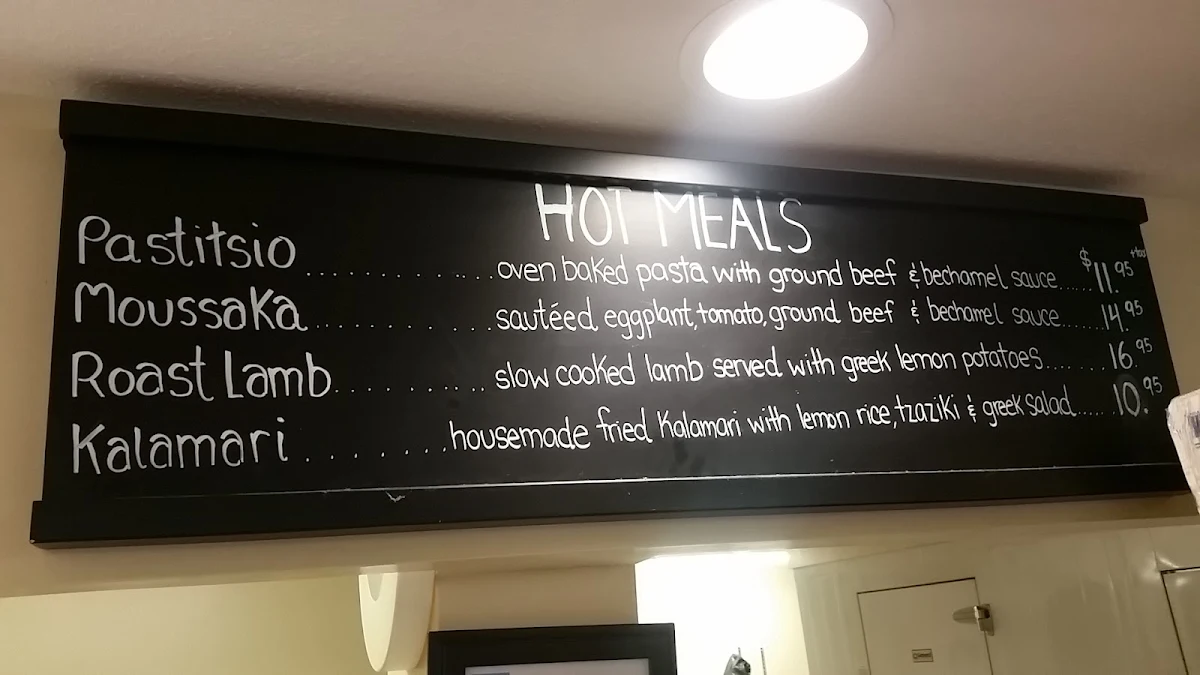 HOT MEALS
Pastitsio ............ oven baked pasta with ground beef & bechamel sauce ..... $11.95 +tax
Moussaka ............ sautéed eggplant, tomato, ground beef & bechamel sauce ...... 14.95
Roast Lamb ............ slow cooked lamb served with greek lemon potatoes ...... 16.95
Kalamari ........ housemade fried Kalamari with lemon rice, tzaziki & greek salad ..... 10.95